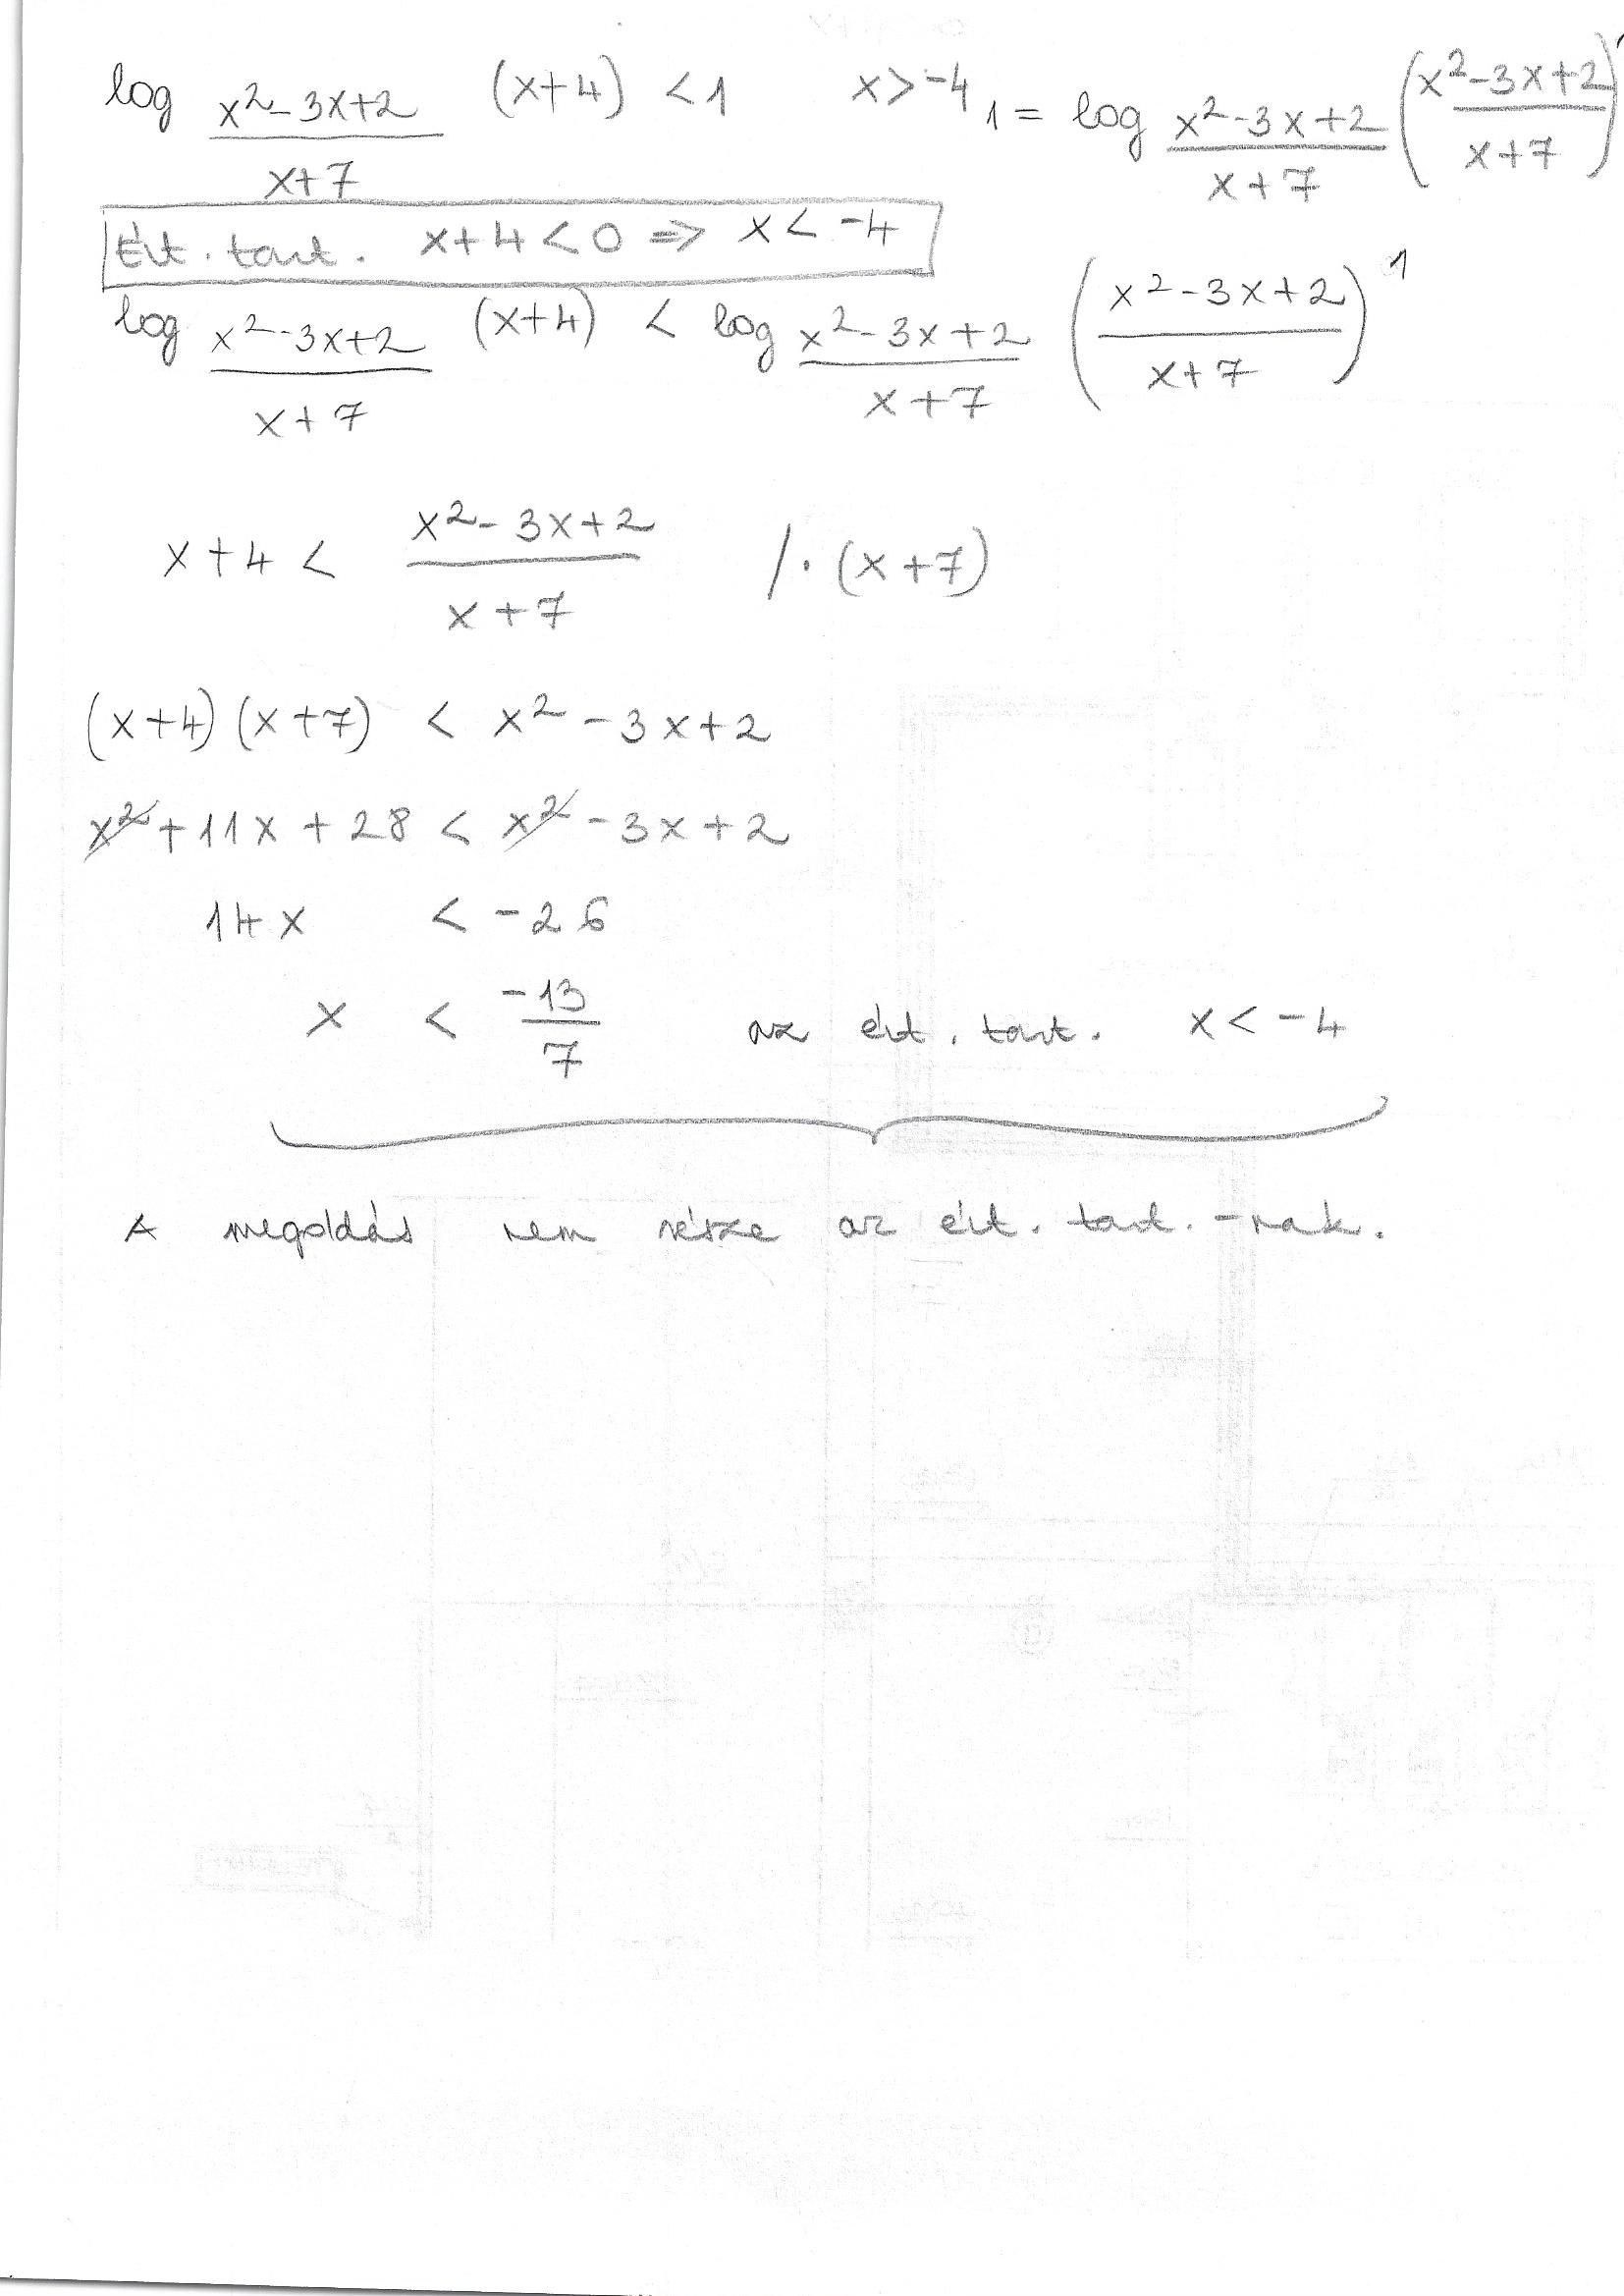 log_{\frac{x^2-3x+2}{x+7}} (x+4) < 1 x > -4 1 = log_{\frac{x^2-3x+2}{x+7}} \left(\frac{x^2-3x+2}{x+7}\right)^1
Ért. tart. x+4 < 0 ⇒ x < -4
log_{\frac{x^2-3x+2}{x+7}} (x+4) < log_{\frac{x^2-3x+2}{x+7}} \left(\frac{x^2-3x+2}{x+7}\right)^1
x+4 < \frac{x^2-3x+2}{x+7} /·(x+7)
(x+4)(x+7) < x^2-3x+2
x^2+11x+28 < x^2-3x+2
14x < -26
x < \frac{-13}{7} az ért. tart. x < -4
A megoldás nem része az ért. tart.-nak.